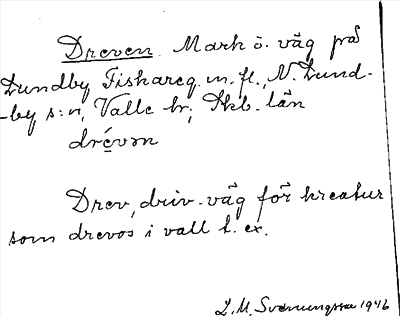 Dreven. Mark o. väg på
Lundby Fiskareg. m. fl., N. Lund-
-by s:n, Valle hr; Skb. län
drévėn

Drev, driv-väg för kreatur
som drevos i vall t. ex.

L. M. Svenungsson 1946